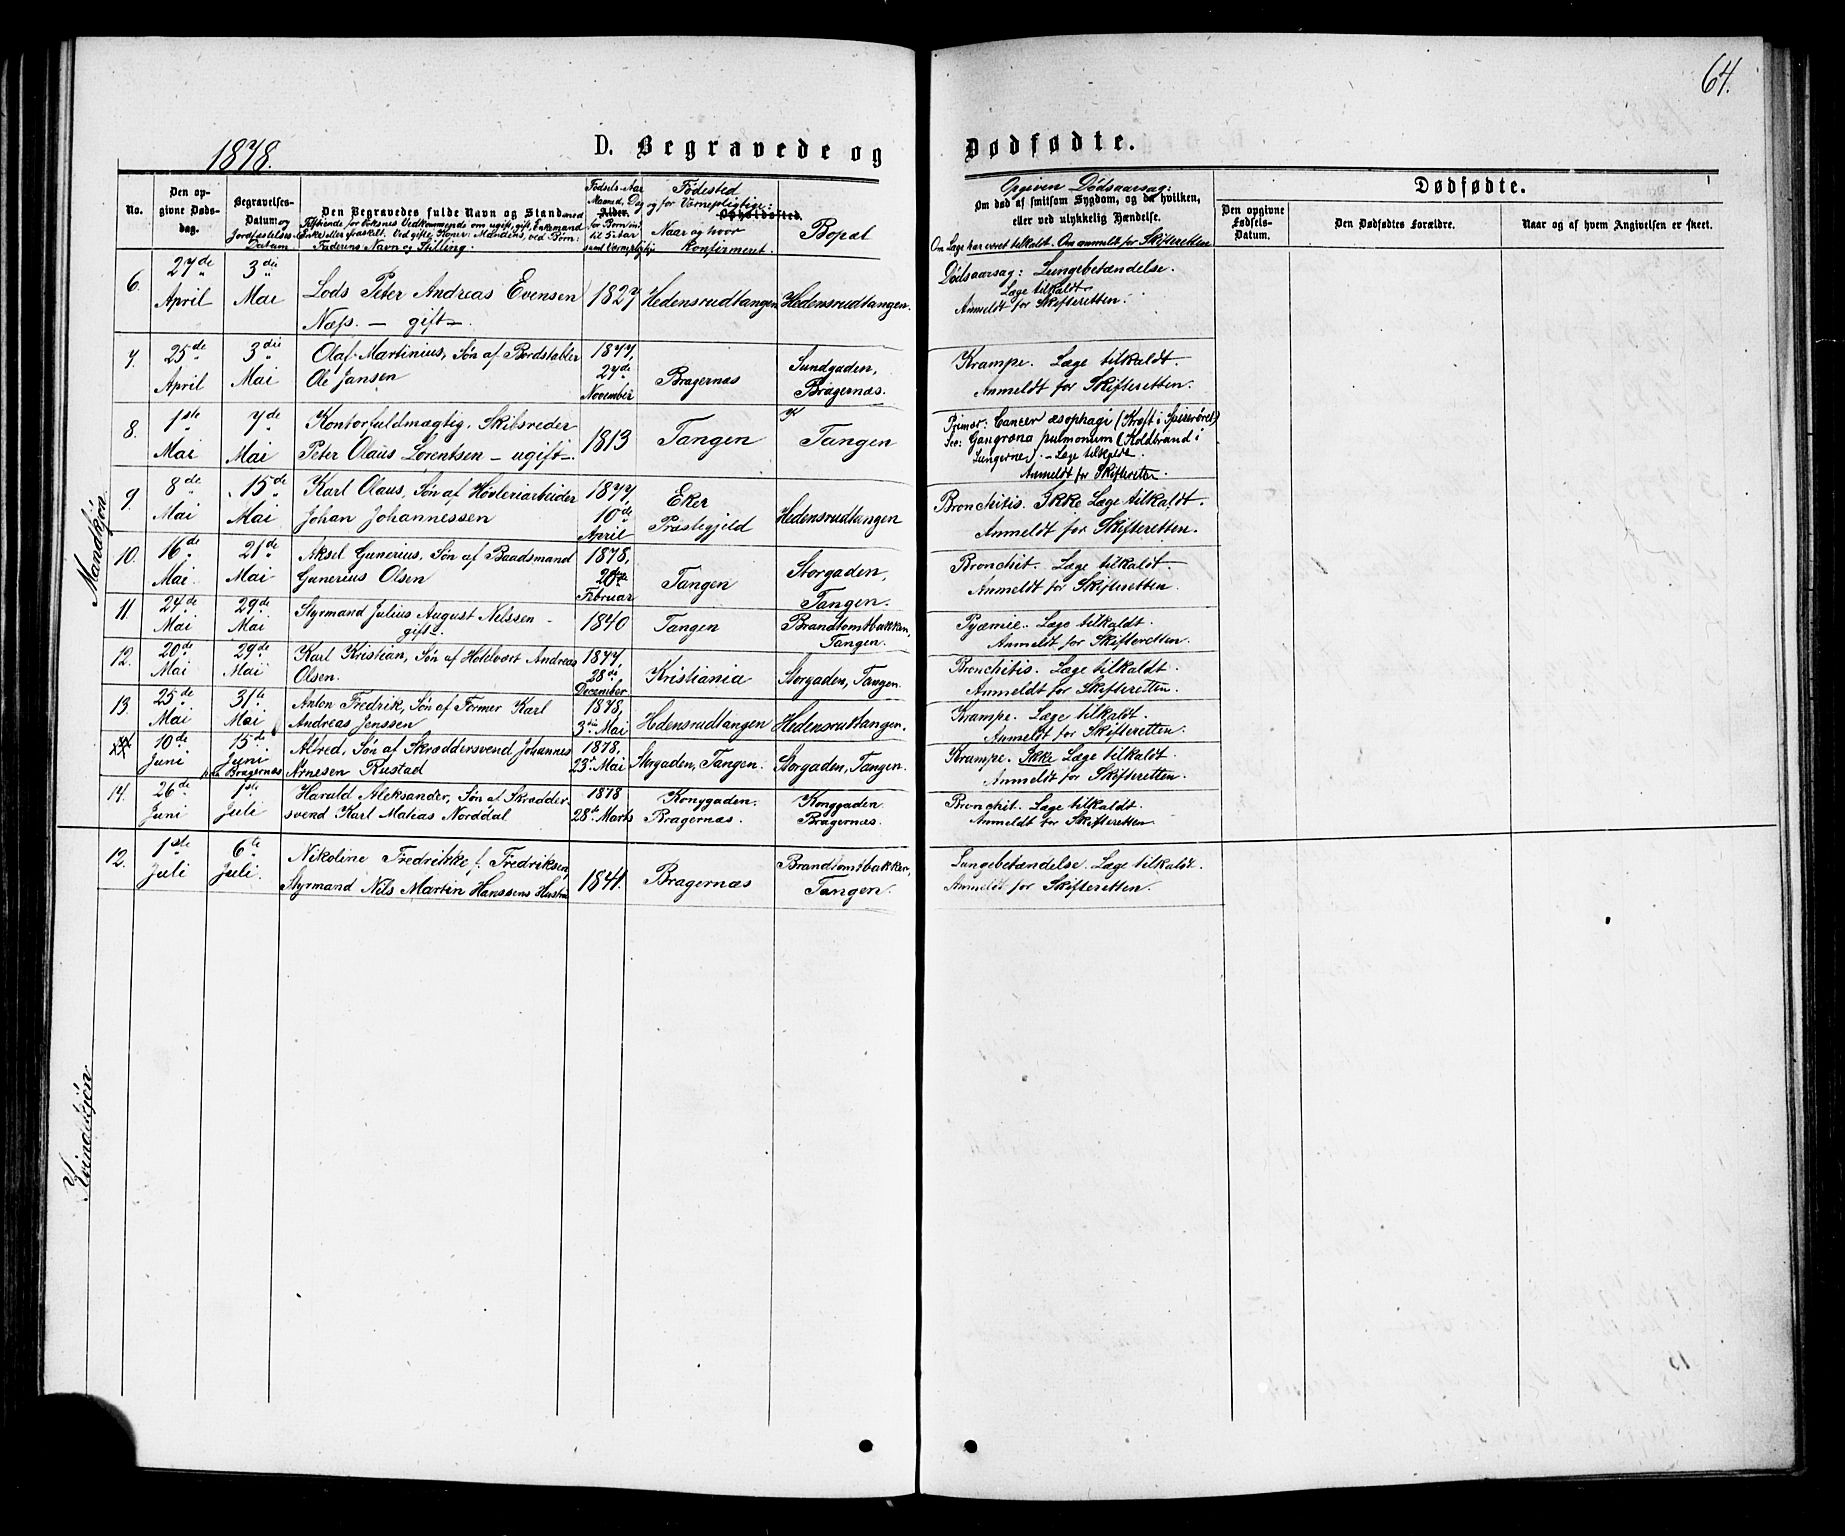 64.
1878.
D. Begravede og Dødfødte.
No.
Den opgivne Dødsdag.
Begravelses-Datum og Jordfæstelses-Datum
Den Begravedes fulde Navn og Stand
Fødsels-Aar Maaned, Dag
Alder.
for Børn ind til 5 Aar
Fødested
og for Værnepligtige:
Opholdssted.
Naar og hvor konfirmeret.
Bopæl
Opgiven Dødsaarsag:
Om død af smitsom Sygdom, og da hvilken,
eller ved ulykkelig Hændelse.
Om Læge har været tilkaldt. Om anmeldt for Skifteretten
Dødfødte.
Den opgivne Fødsels-Datum.
Den Dødfødtes Forældre.
Naar og af hvem Angivelsen er skeet.
Mandkjøn
6. 27de April 3die Mai Lods Peter Andreas Evensen Næss. — gift —. 1827 Hedensrudtangen Hedensrudtangen. Dødsaarsag: Lungebetændelse. Læge tilkaldt. Anmeldt for Skifteretten.
7. 25de April 3die Mai Olaf Martinius, Søn af Bordstabler Ole Jansen 1877, 27de November Bragernæs Sundgaden, Bragernæs. Krampe. Læge tilkaldt. Anmeldt for Skifteretten.
8. 1ste Mai 7de Mai Kontorfuldmægtig, Skibsreder Peter Olaus Lorentsen — ugift —. 1813 Tangen Tangen Primær: Cancer æsophagi (Kræft i Spiserøret) Sec: Gangræna pulmonum (Koldbrand i Lungerne). — Læge tilkaldt. Anmeldt for Skifteretten
9. 8de Mai 15de Mai Karl Olaus, Søn af Høvleriarbeider Johan Johannessen 1877, 10de April Eker Præstegjeld Hedensrudtangen Bronchitis. Ikke Læge tilkaldt. Anmeldt for Skifteretten.
10. 16de Mai. 21de Mai Aksel Gunerius, Søn af Baadsmand Gunerius Olsen 1878, 20de Februar Tangen Storgaden, Tangen. Bronchit. Læge tilkaldt. Anmeldt for Skifteretten.
11. 24de Mai 29de Mai Styrmand Julius August Nelssen — gift —. 1840 Tangen Brandtomtbakken, Tangen. Pyæmie. Læge tilkaldt. Anmeldt for Skifteretten.
12. 20de Mai 29de Mai Karl Kristian, Søn af Andreas Olsen. 1877, 28de December Kristiania Storgaden, Tangen. Bronchitis. Læge tilkaldt. Anmeldt for Skifteretten.
13. 25de Mai 31te Mai Anton Fredrik, Søn af Former Karl Andreas Jenssen 1878, 3die Mai Hedensrudtangen Hedensrudtangen. Krampe. Læge tilkaldt. Anmeldt for Skifteretten.
10de Juni 15de Juni paa Bragernæs Alfred, Søn af Skræddersvend Johannes Arnesen Rustad 1878, 23de Mai Storgaden, Tangen. Storgaden, Tangen. Krampe. Ikke Læge tilkaldt. Anmeldt for Skifteretten.
14. 26de Juni 1ste Juli Harald Aleksander, Søn af Skræddersvend Karl Matias Norddal 1878 28de Marts Konggaden. Bragernæs. Konggaden Bragernæs. Bronchit. Læge tilkaldt. Anmeldt for Skifteretten.
Kvindekjøn
12. 1ste Juli 6te Juli. Nikoline Fredrikke f. Fredriksen, Styrmand Nels Martin Hanssens Hustru 1841. Bragernæs Brandtomtbakken, Tangen. Lungebetændelse. Læge tilkaldt. Anmeldt for Skifteretten.